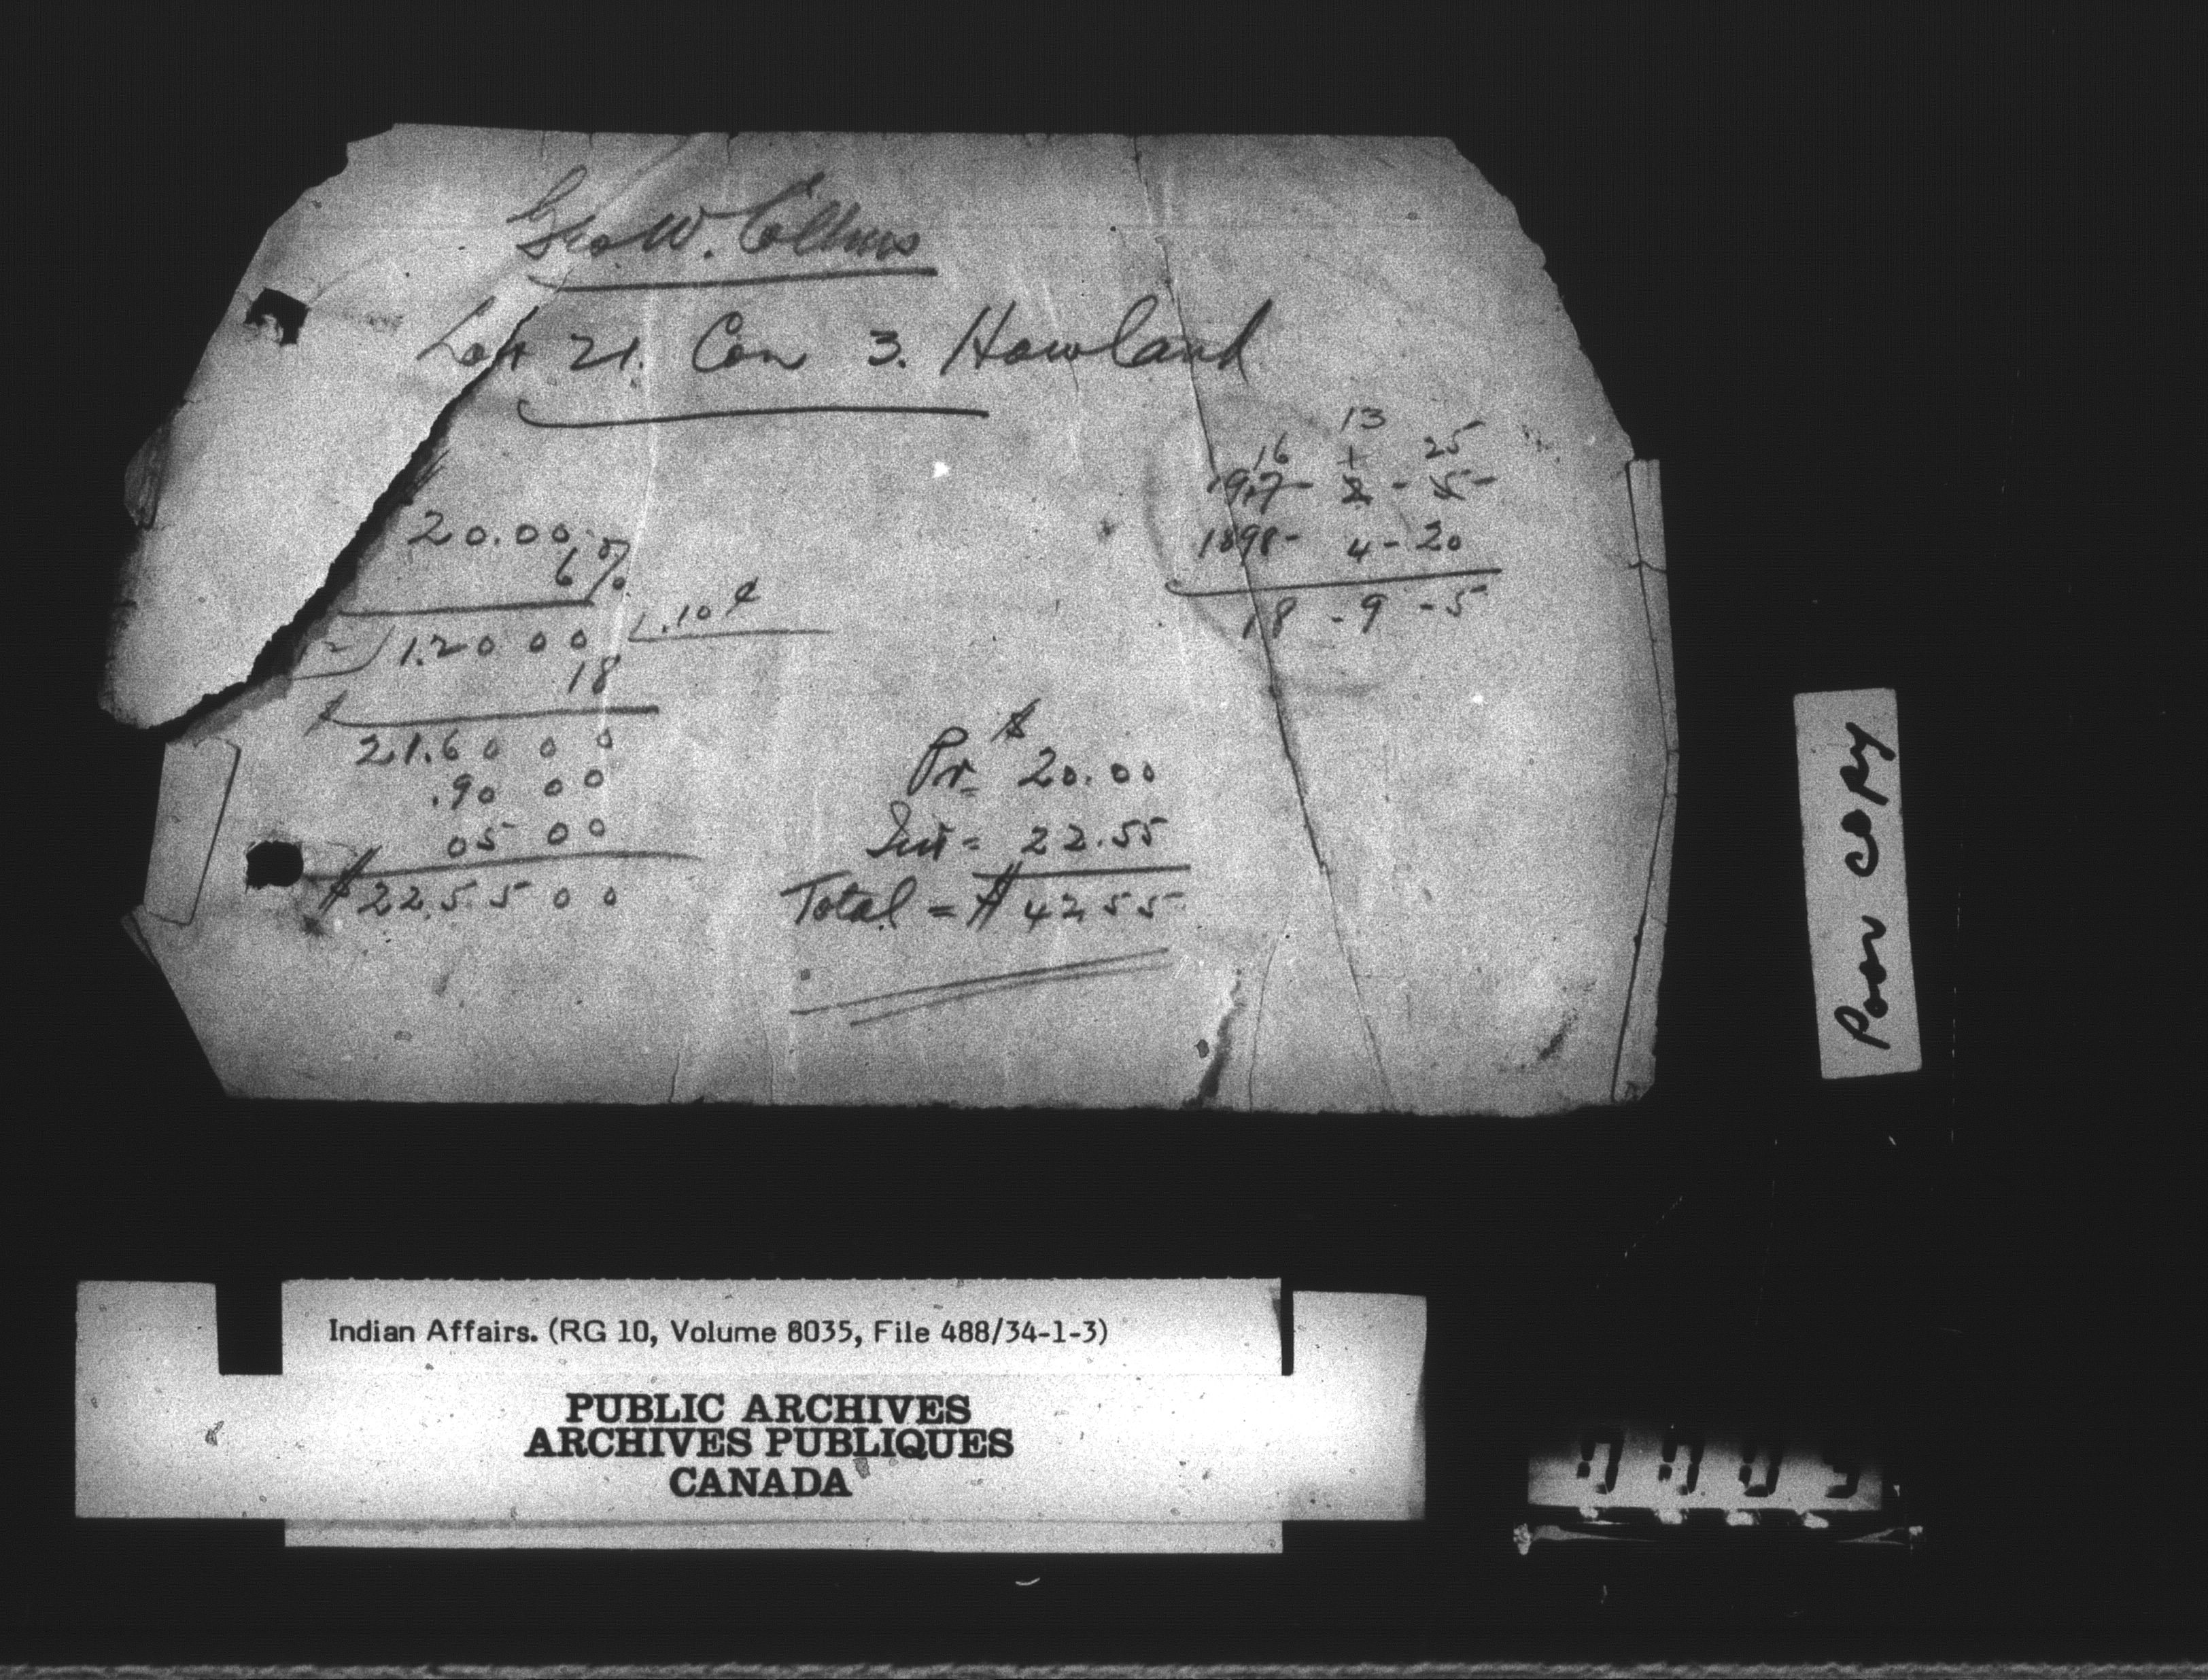 Geo W. Collins
Lot 21. Con 3. Howland
13
16 1 25
1917 - 2 - 5 -
1898 - 4 - 20
18 - 9 - 5
20.00
6%
12) 1.20 00 .10¢
18
21.60 00
.90 00
05 00
$22.55 00
$
Pr. 20.00
Int = 22.55
Total = $42.55
Poor copy
Indian Affairs. (RG 10, Volume 8035, File 488/34-1-3)
PUBLIC ARCHIVES
ARCHIVES PUBLIQUES
CANADA